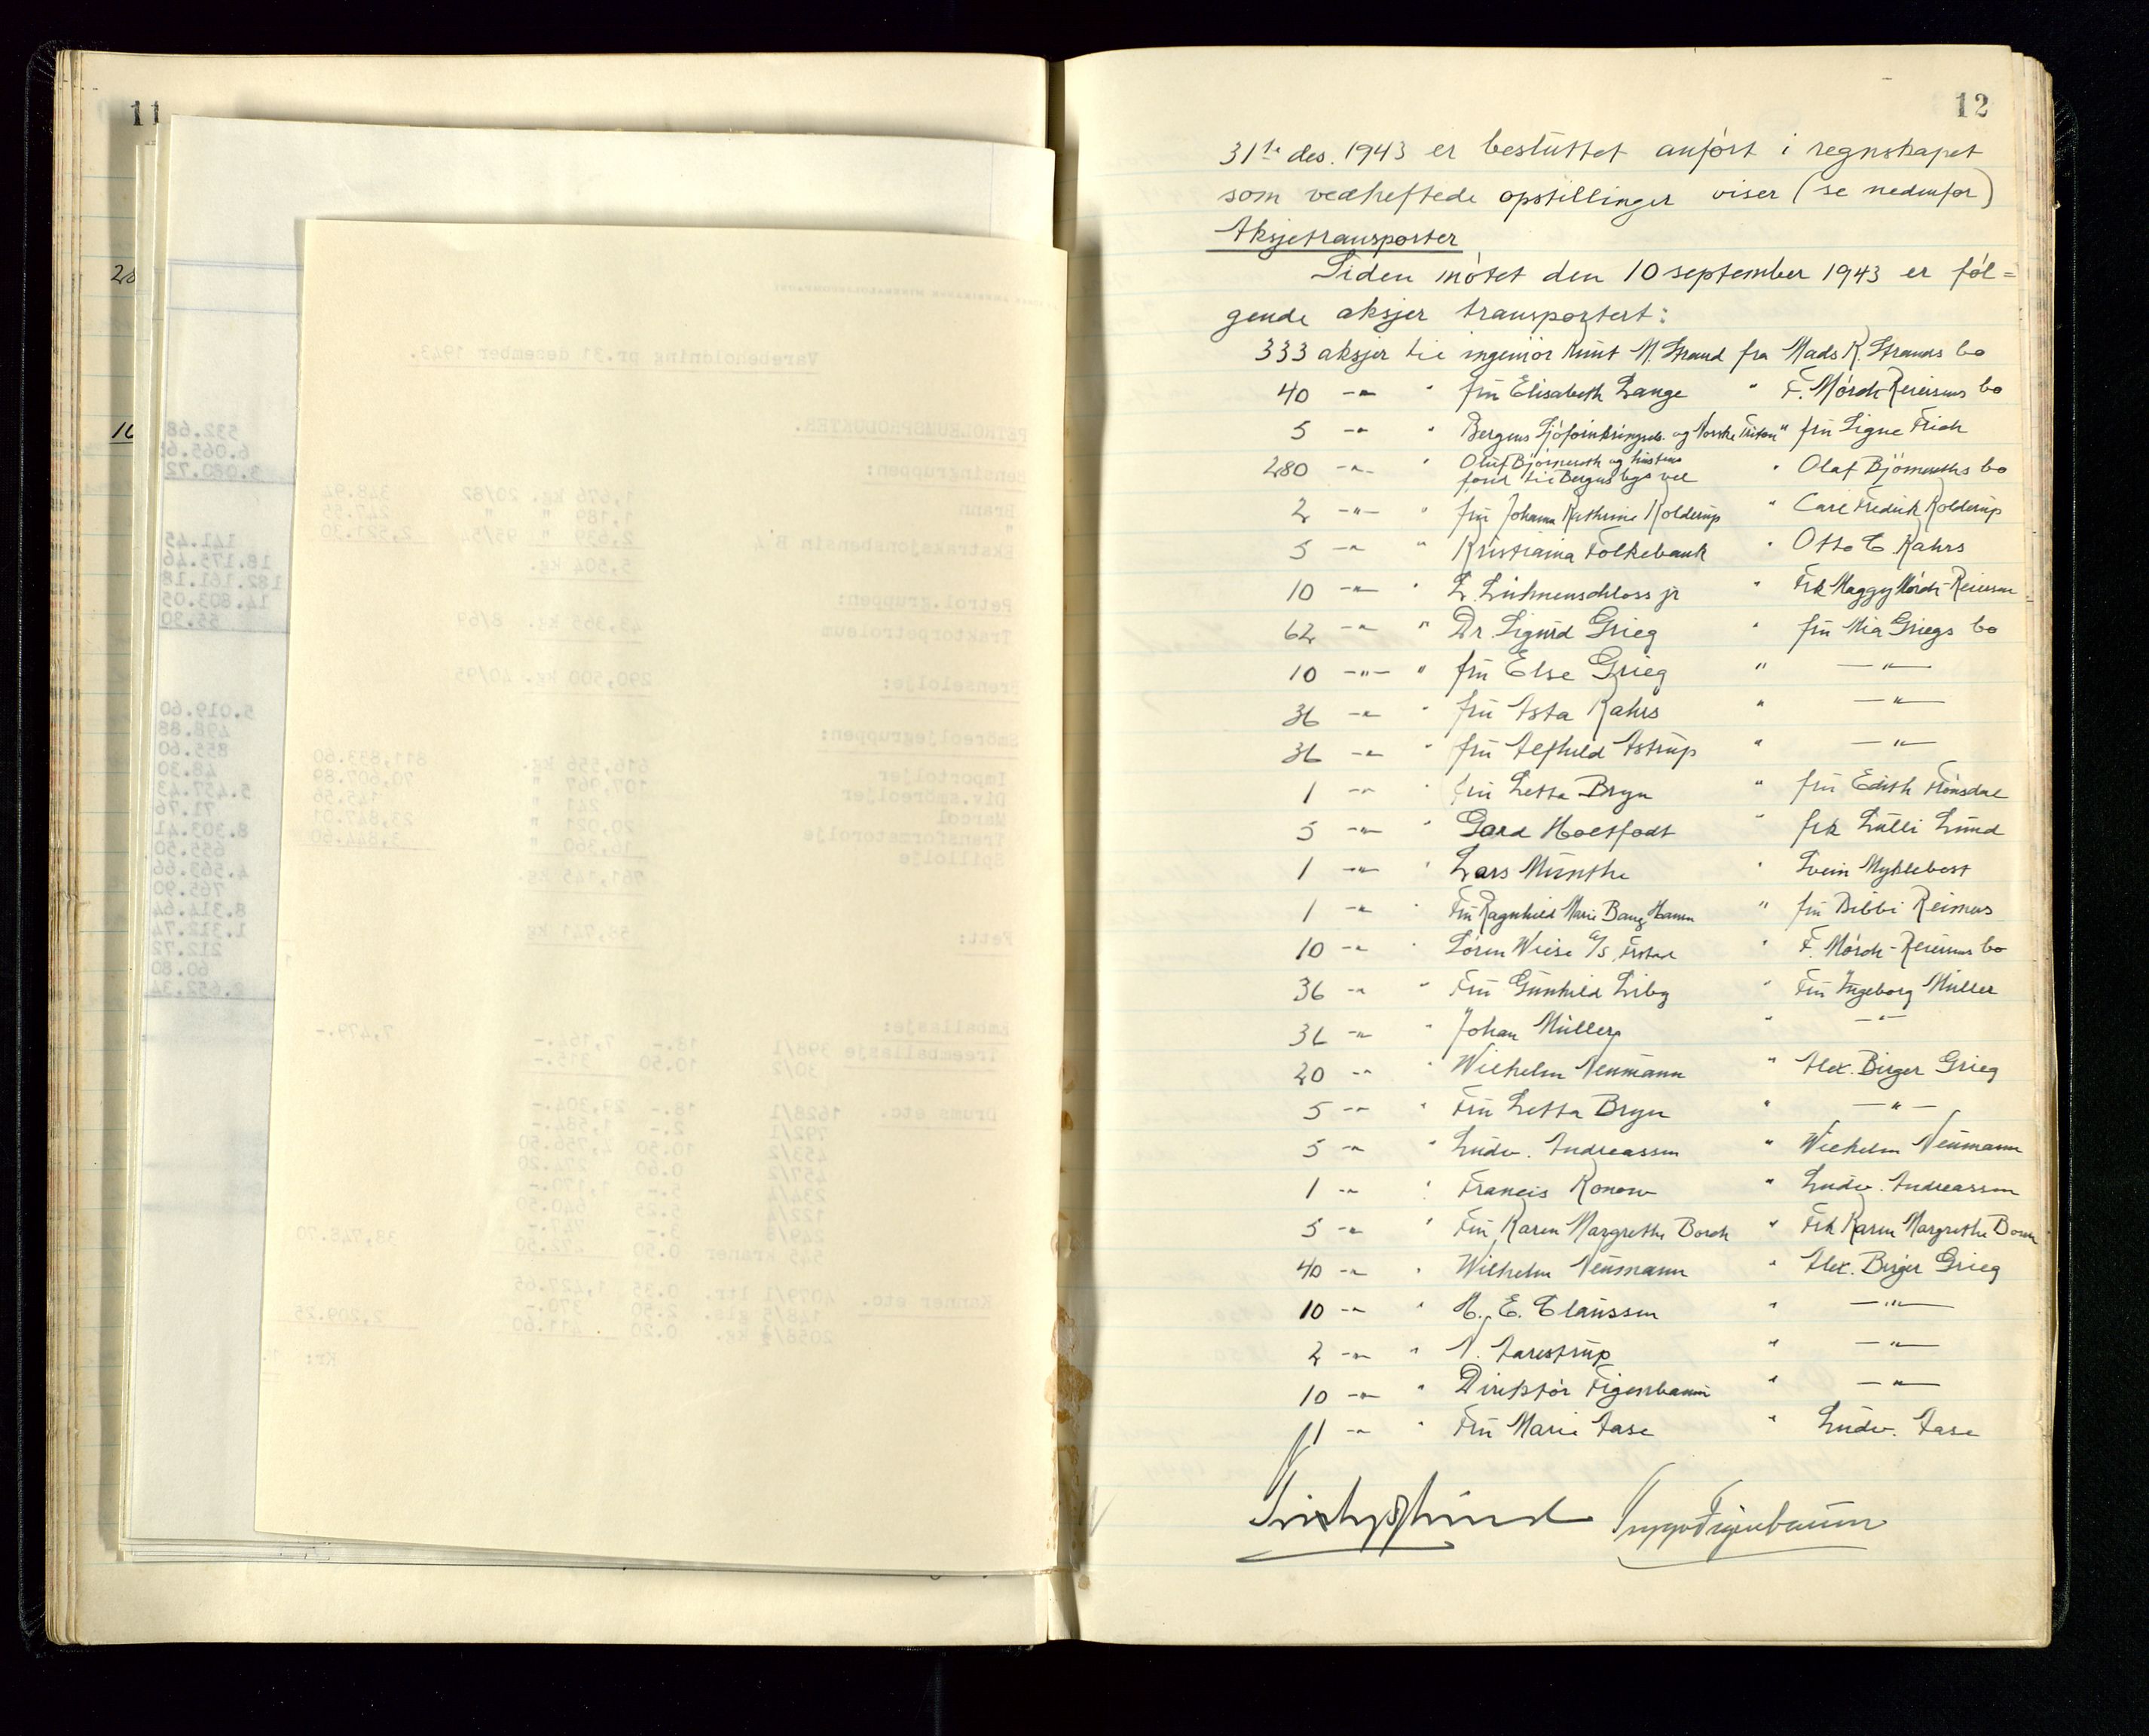 11
28
12
31te des. 1943 er besluttet anført i regnskapet
som vedheftede opstillinger viser (se nedenfor)
Aksjetransporter
Siden møtet den 10 september 1943 er føl=
gende aksjer transportert:
333 aksjer til ingeniør Knut M. Strand fra Mads K. Strands bo
40 -"- " fru Elisabeth Lange " F. Mörch-Reiersens bo
5 -"- " Bergens Sjøforsikringss. og Norske Triton " fru Signe Frich
280 -"- " Oluf Bjørneseth og hustrus " Olaf Bjørneseths bo
fond til Bergens bys vel
2 -"- " fru Johanna Kathrine Kolderup " Carl Fredrik Kolderup
5 -"- " Kristiania Folkebank " Otto C. Kahrs
10 -"- " L. Lühnenschloss jr " Frk Maggy Mörch-Reiersen
62 -"- " Dr. Sigurd Grieg " fru Mia Griegs bo
10 -"- " fru Else Grieg " -"-
36 -"- " fru Asta Kahrs " -"-
36 -"- " fru Alfhild Astrup " -"-
1 -"- " fru Letta Bryn " fru Edith Frönsdal
5 -"- " Gard Holtfodt " frk Lulli Lund
1 -"- " Lars Munthe " Svein Myklebost
1 -"- " Fru Ragnhild Marie Bang Hamm " fru Bibbi Reimers
10 -"- " Sören Wiese a/s, " F. Mörch-Reiersens bo
36 -"- " Fru Gunhild Liby " Fru Ingeborg Müller
36 -"- " Johan Müller " -"-
20 -"- " Wilhelm Neumann " Alex. Birger Grieg
5 -"- " Fru Letta Bryn " -"-
5 -"- " Ludv. Andreassen " Wilhelm Neumann
1 -"- " Francis Konow " Ludv. Andreassen
5 -"- " Fru Karen Margrethe Borch " Frk Karen Margrethe Borch
40 -"- " Wilhelm Neumann " Alex. Birger Grieg
10 -"- " H. E. Claussen " -"-
2 -"- " N. Aarestrup " -"-
10 -"- " Direktör Figenbaum " -"-
11 -"- " Fru Marie Aase " Ludv. Aase
Trygve Figenbaum
Varebeholdning pr.31 desember 1943.
PETROLEUMSPRODUKTER.
Bensingruppen:
Brann 1,676 kg. 20/82 348.94
" 1,189 " " 247.55
Ekstraksjonsbensin B.4 2,639 " 95/54 2,521.30
5,504 kg.
Petrol.gruppen:
Traktorpetroleum 43,355 kg. 8/69
Brenselolje: 290,500 kg. 40/95
Smöreoljegruppen:
Importoljer 616,556 kg. 811,833.60
Div.smöreoljer 107,967 " 70,607.89
Marcol 241 " 145.56
Transformatorolje 20,021 " 23,847.01
Spillolje 16,360 " 3,844.60
761,145 kg.
Fett: 58,741 kg
Emballasje:
Treemballasje 398/1 18.- 7,164.-
30/2 10.50 315.- 7,479.-
Drums etc. 1628/1 18.- 29,304.-
792/1 2.- 1,584.-
453/2 10.50 4,756.50
457/2 0.60 274.20
234/4 5.- 1,170.-
122/4 5.25 640.50
249/8 3.- 747.-
545 kraner 0.50 272.50 38,748.70
Kanner etc. 4079/1 ltr. 0.35 1,427.65
148/5 gls. 2.50 370.-
2058/ kg. 0.20 411.60 2,209.25
Kr: